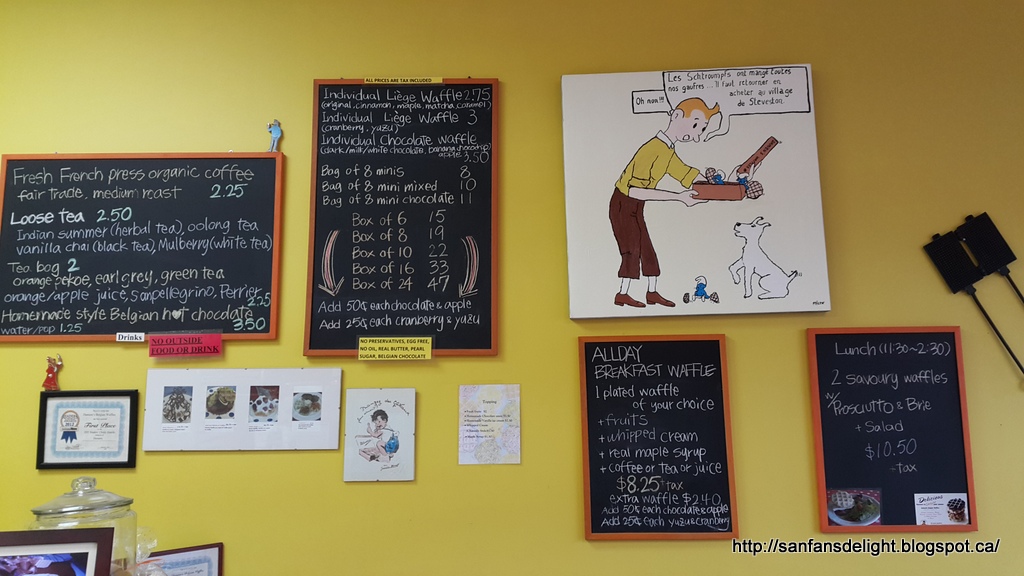 Fresh French press organic coffee
fair trade, medium roast 2.25
Loose tea 2.50
Indian summer (herbal tea), oolong tea
vanilla chai (black tea), Mulberry (white tea)
Tea bag 2
orange pekoe, earl grey, green tea
orange/apple juice, sanpellegrino, Perrier
2.25
Homemade style Belgian hot chocolate
water/pop 1.25 3.50
Drinks
NO OUTSIDE
FOOD OR DRINK
ALL PRICES ARE TAX INCLUDED
Individual Liège Waffle 2.75
(original, cinnamon, maple, matcha, caramel)
Individual Liège Waffle 3
(cranberry, yuzu)
Individual Chocolate waffle
(dark/milk/white chocolate, banana chocochip)
apple 3.50
Bag of 8 minis 8
Bag of 8 mini mixed 10
Bag of 8 mini chocolate 11
Box of 6 15
Box of 8 19
Box of 10 22
Box of 16 33
Box of 24 47
Add 50¢ each chocolate & apple
Add 25¢ each cranberry & yuzu
NO PRESERVATIVES, EGG FREE,
NO OIL, REAL BUTTER, PEARL
SUGAR, BELGIAN CHOCOLATE
Les Schtroumpfs ont mangé toutes
nos gaufres... Il faut retourner en
acheter au village
de Steveston.
Oh non!!!
First Place
Topping
ALLDAY
BREAKFAST WAFFLE
1 plated waffle
of your choice
+ fruits
+ whipped cream
+ real maple syrup
+ coffee or tea or juice
$8.25 + tax
extra waffle $2.40
Add 50¢ each chocolate & apple
Add 25¢ each yuzu & cranberry
Lunch (11:30~2:30)
2 savoury waffles
w/ Prosciutto & Brie
+ Salad
$10.50
+tax
Delicious
http://sanfansdelight.blogspot.ca/